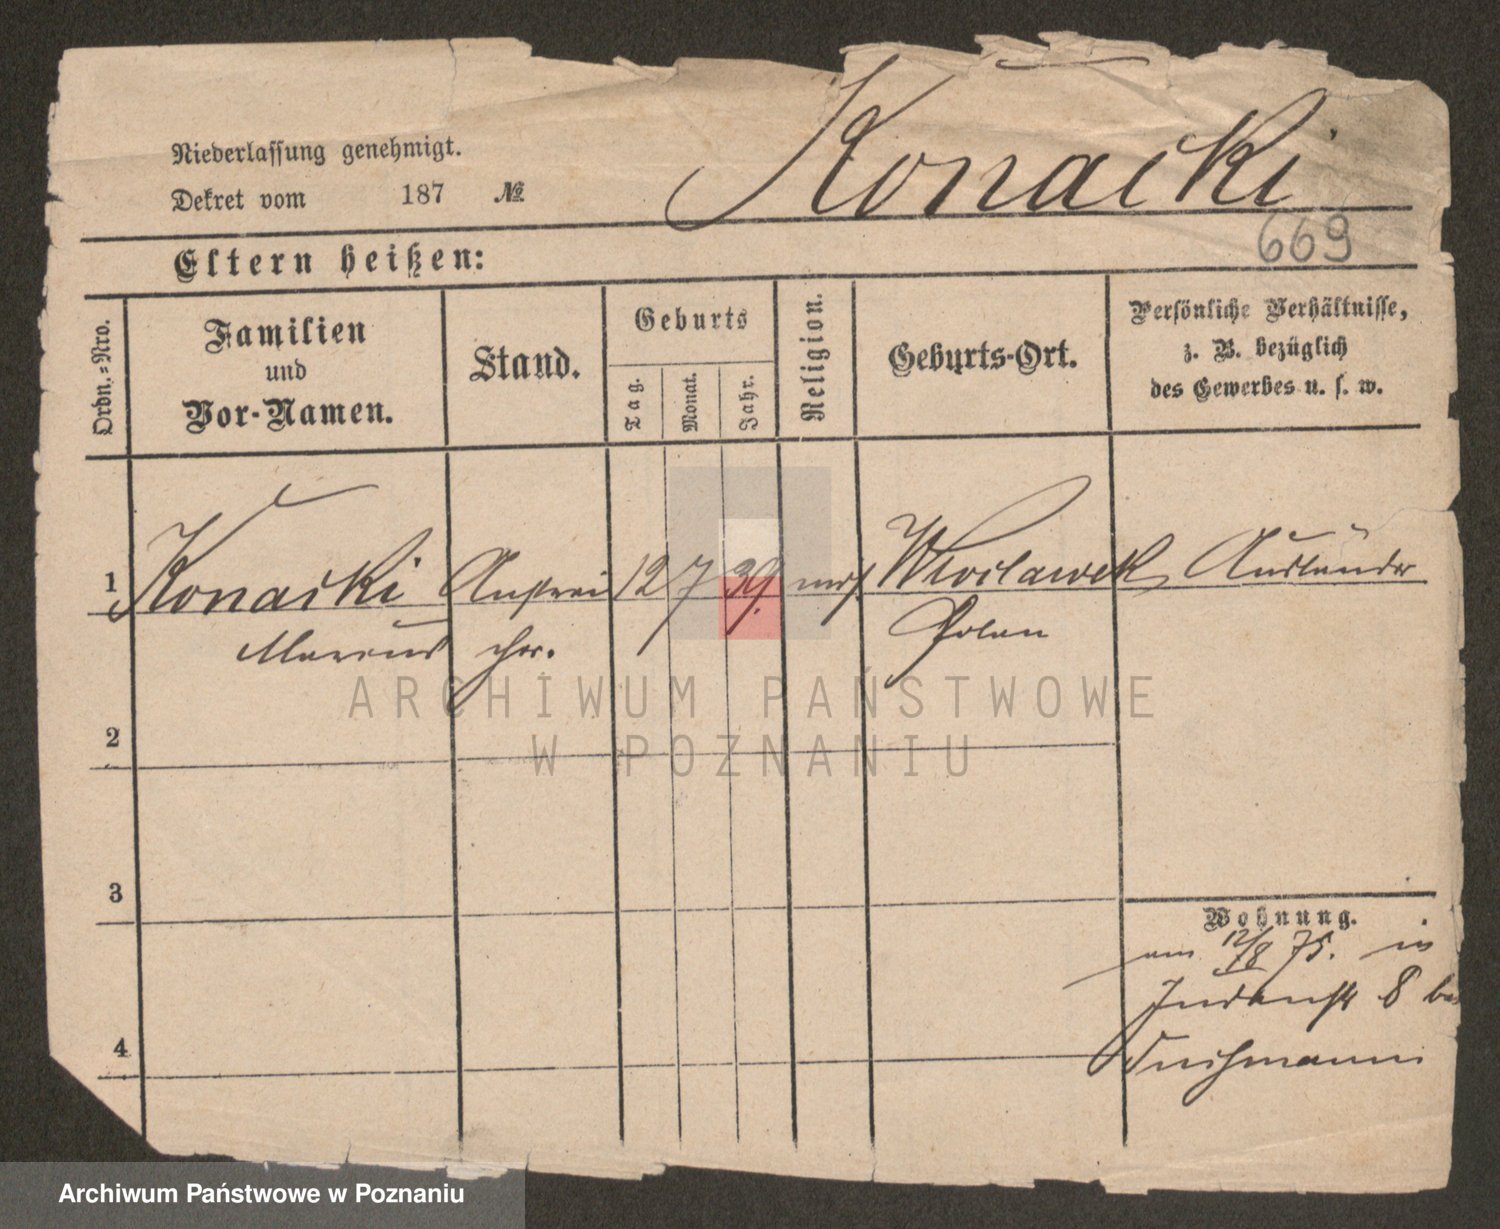 Niederlassung genehmigt.
Konacki
Dekret vom 187 №
669
Eltern heißen:
Ordn.-Nro.
Familien
und
Vor-Namen.
Stand.
Geburts
Tag.
Monat.
Jahr.
Religion.
Geburts-Ort.
Persönliche Verhältnisse,
z. B. bezüglich
des Gewerbes u. s. w.
1 Konacki 12 7 39. mos. Wloclawek Ausländer
Marcus Polen
ARCHIWUM PAŃSTWOWE
W POZNANIU
2
3
Wohnung.
am 12/8 75. in
Judenstr 8 bei
4
Archiwum Państwowe w Poznaniu